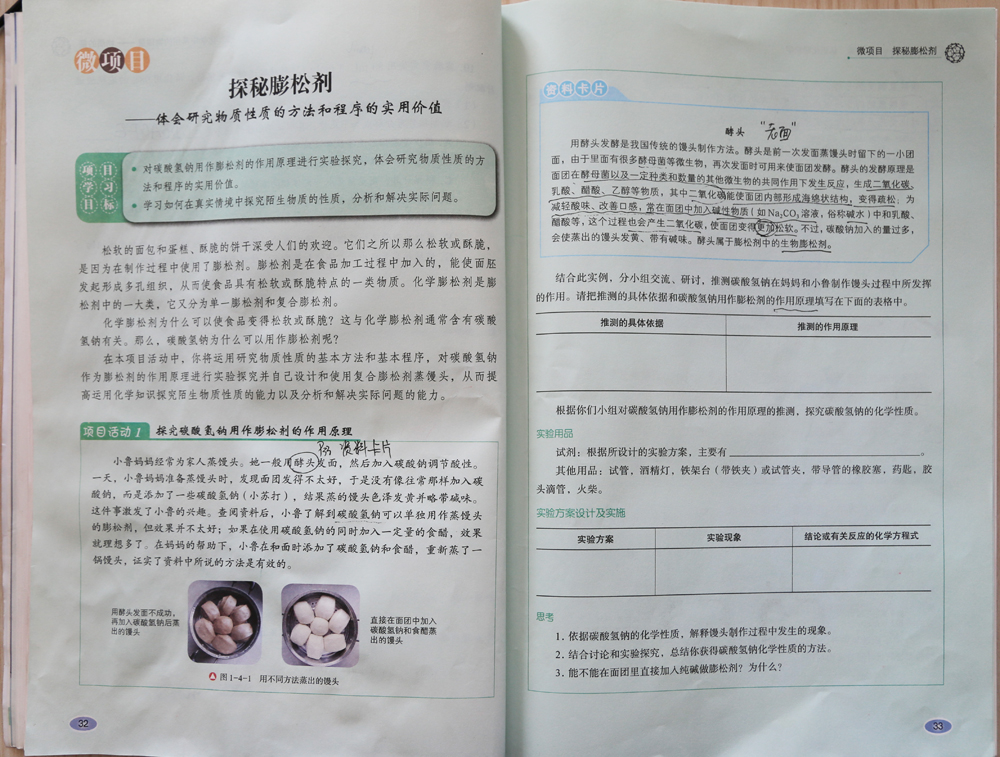 微项目
探秘膨松剂
——体会研究物质性质的方法和程序的实用价值
项目
学习
目标
·对碳酸氢钠用作膨松剂的作用原理进行实验探究，体会研究物质性质的方
法和程序的实用价值。
·学习如何在真实情境中探究陌生物质的性质，分析和解决实际问题。
松软的面包和蛋糕、酥脆的饼干深受人们的欢迎。它们之所以那么松软或酥脆，
是因为在制作过程中使用了膨松剂。膨松剂是在食品加工过程中加入的，能使面胚
发起形成多孔组织，从而使食品具有松软或酥脆特点的一类物质。化学膨松剂是膨
松剂中的一大类，它又分为单一膨松剂和复合膨松剂。
化学膨松剂为什么可以使食品变得松软或酥脆？这与化学膨松剂通常含有碳酸
氢钠有关。那么，碳酸氢钠为什么可以用作膨松剂呢？
在本项目活动中，你将运用研究物质性质的基本方法和基本程序，对碳酸氢钠
作为膨松剂的作用原理进行实验探究并自己设计和使用复合膨松剂蒸馒头，从而提
高运用化学知识探究陌生物质性质的能力以及分析和解决实际问题的能力。
项目活动1 探究碳酸氢钠用作膨松剂的作用原理
P33 资料卡片
小鲁妈妈经常为家人蒸馒头。她一般用酵头发面，然后加入碳酸钠调节酸性。
一天，小鲁妈妈准备蒸馒头时，发现面团发得不太好，于是没有像往常那样加入碳
酸钠，而是添加了一些碳酸氢钠（小苏打），结果蒸的馒头色泽发黄并略带碱味。
这件事激发了小鲁的兴趣。查阅资料后，小鲁了解到碳酸氢钠可以单独用作蒸馒头
的膨松剂，但效果并不太好；如果在使用碳酸氢钠的同时加入一定量的食醋，效果
就理想多了。在妈妈的帮助下，小鲁在和面时添加了碳酸氢钠和食醋，重新蒸了一
锅馒头，证实了资料中所说的方法是有效的。
用酵头发面不成功，
再加入碳酸氢钠后蒸
出的馒头
直接在面团中加入
碳酸氢钠和食醋蒸
出的馒头
图1-4-1 用不同方法蒸出的馒头
32
微项目 探秘膨松剂
资料卡片
酵头 “老面”
用酵头发酵是我国传统的馒头制作方法。酵头是前一次发面蒸馒头时留下的一小团
面，由于里面有很多酵母菌等微生物，再次发面时可用来使面团发酵。酵头的发酵原理是
面团在酵母菌以及一定种类和数量的其他微生物的共同作用下发生反应，生成二氧化碳、
乳酸、醋酸、乙醇等物质，其中二氧化碳能使面团内部形成海绵状结构，变得疏松。为
减轻酸味、改善口感，常在面团中加入碱性物质（如Na₂CO₃溶液，俗称碱水）中和乳酸、
醋酸等，这个过程也会产生二氧化碳，使面团变得更加松软。不过，碳酸钠加入的量过多，
会使蒸出的馒头发黄、带有碱味。酵头属于膨松剂中的生物膨松剂。
结合此实例，分小组交流、研讨，推测碳酸氢钠在妈妈和小鲁制作馒头过程中所发挥
的作用。请把推测的具体依据和碳酸氢钠用作膨松剂的作用原理填写在下面的表格中。
推测的具体依据 推测的作用原理
根据你们小组对碳酸氢钠用作膨松剂的作用原理的推测，探究碳酸氢钠的化学性质。
实验用品
试剂：根据所设计的实验方案，主要有 。
其他用品：试管，酒精灯，铁架台（带铁夹）或试管夹，带导管的橡胶塞，药匙，胶
头滴管，火柴。
实验方案设计及实施
实验方案 实验现象 结论或有关反应的化学方程式
思考
1. 依据碳酸氢钠的化学性质，解释馒头制作过程中发生的现象。
2. 结合讨论和实验探究，总结你获得碳酸氢钠化学性质的方法。
3. 能不能在面团里直接加入纯碱做膨松剂？为什么？
33